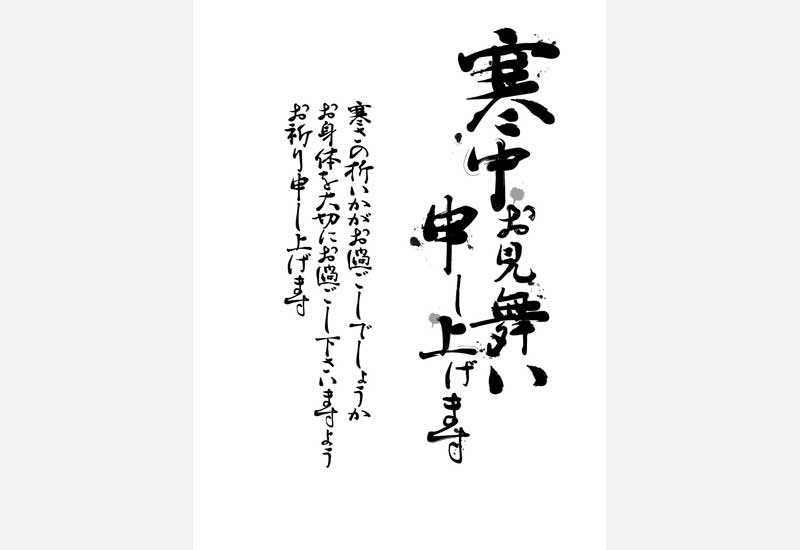 寒中お見舞い
申し上げます
寒さの折いかがお過ごしでしょうか
お身体を大切にお過ごし下さいますよう
お祈り申し上げます